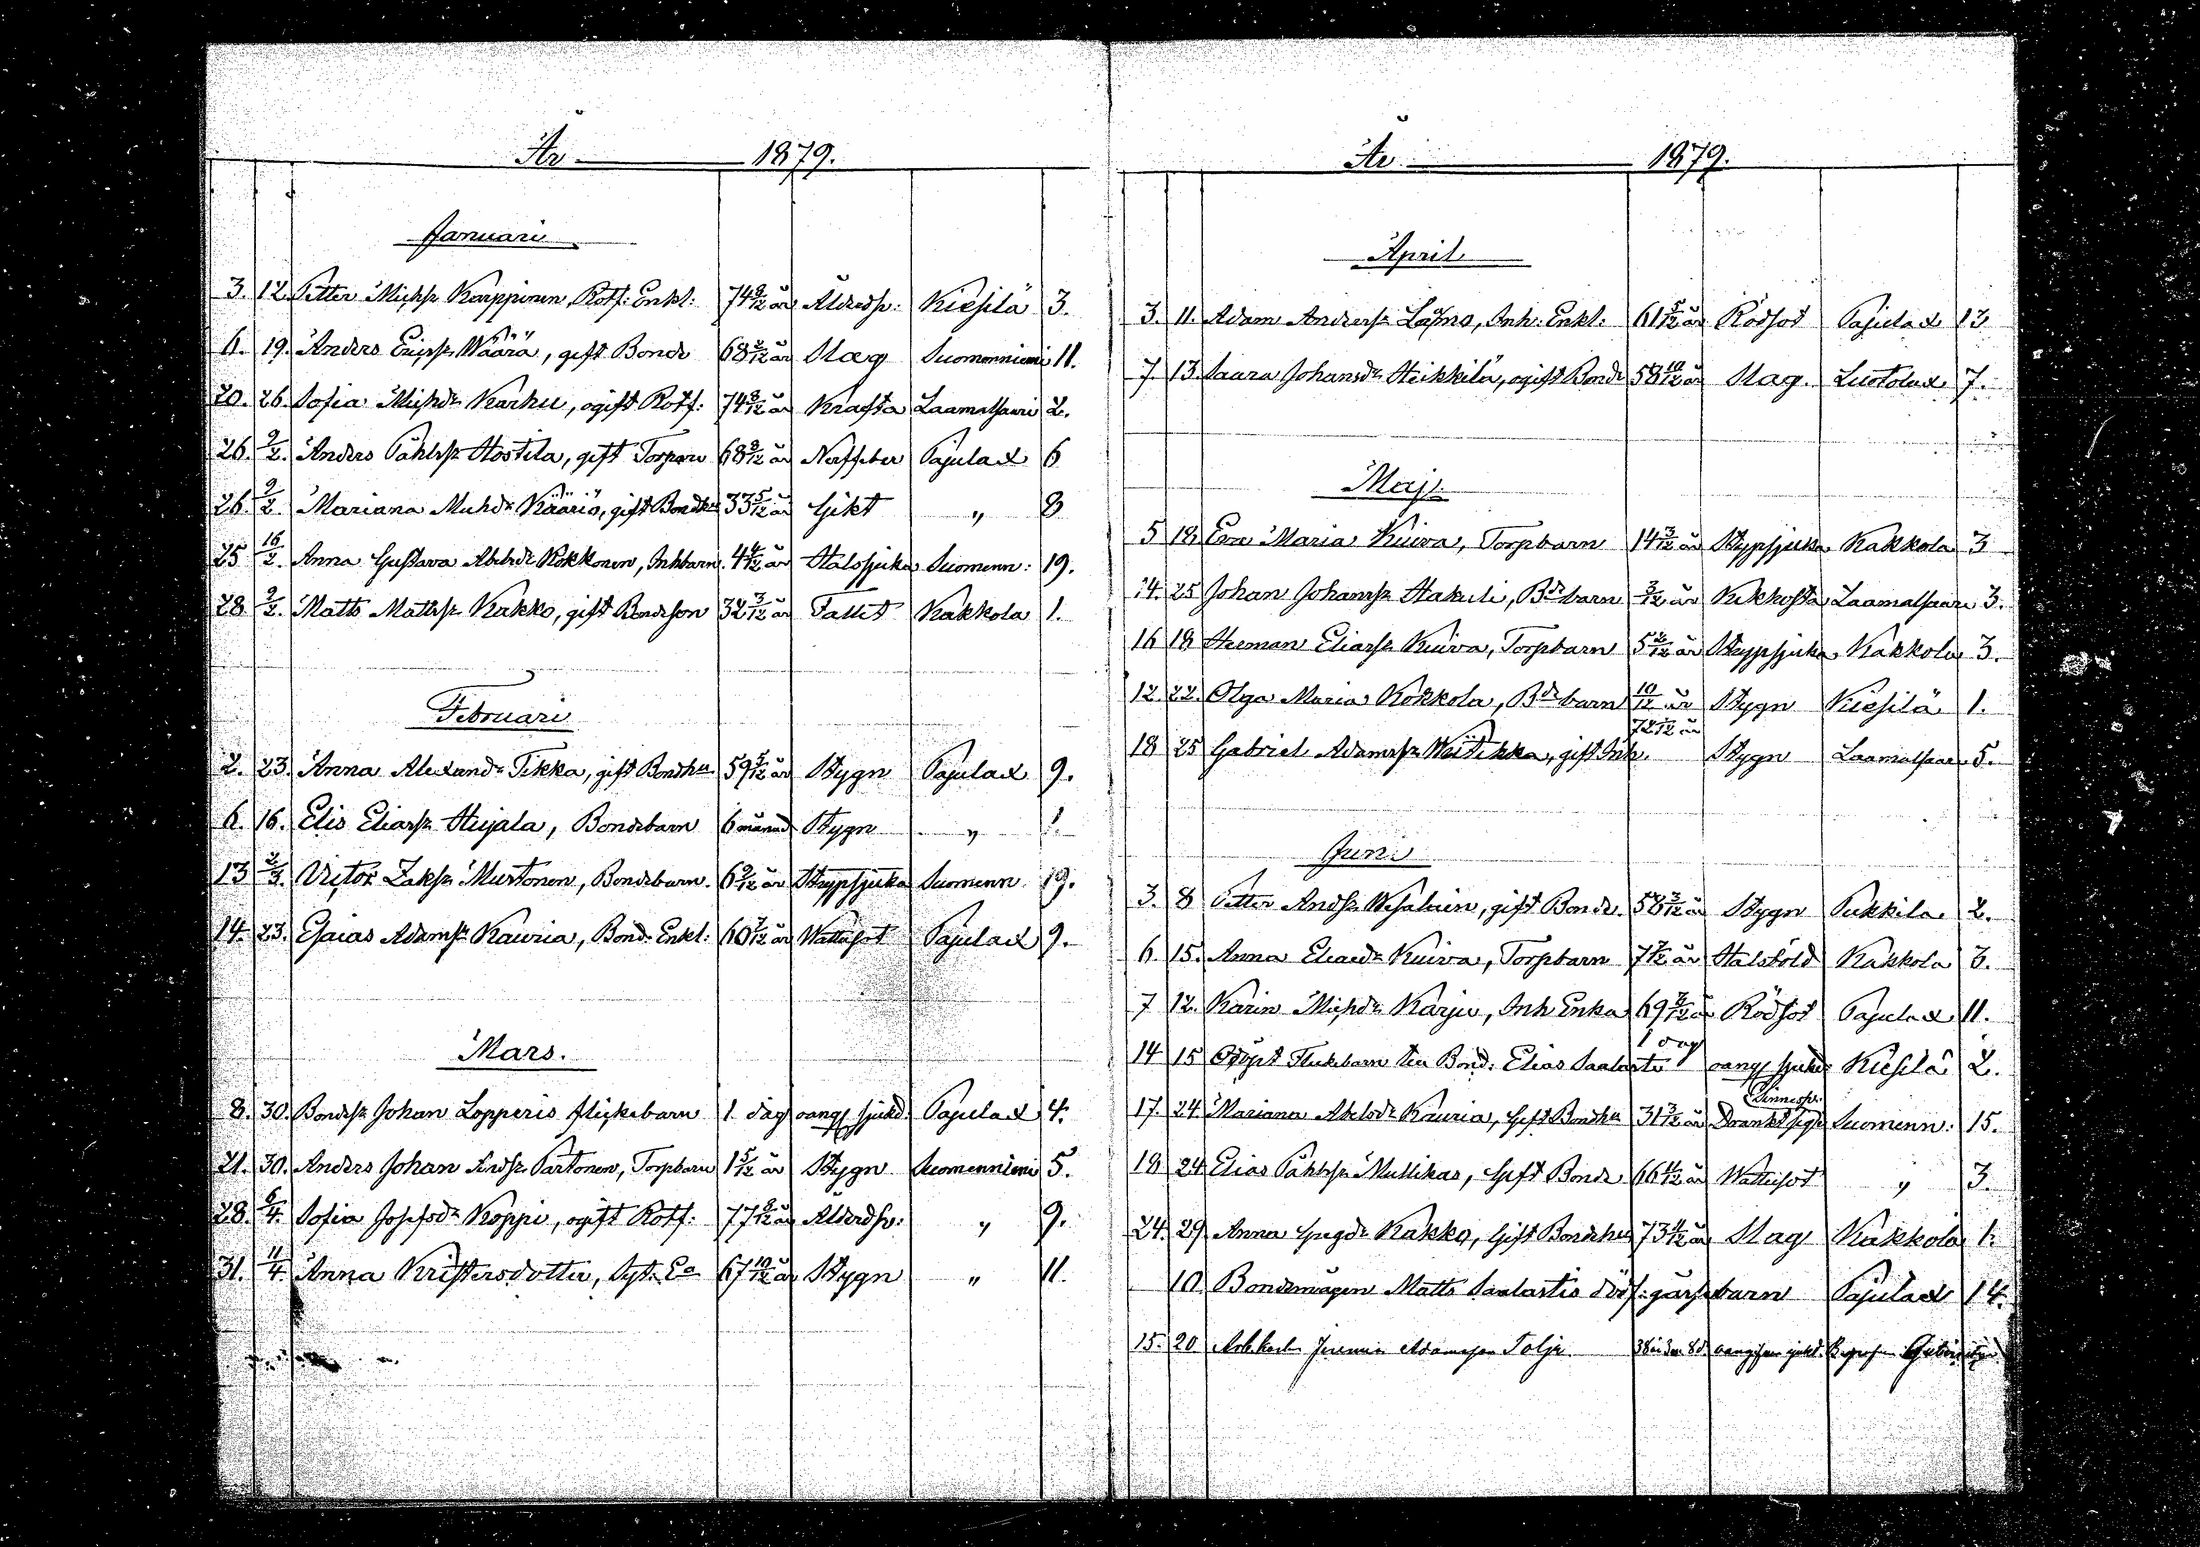 År 1879.
Januari
3. 12. Petter Michsr Karppinen, Rotf: Enkl: 74 8/12 år Ålderdsv: Kiesilä 3.
6. 19. Anders Ericsr Wäärä, gift Bonde 68 2/12 år Slag Suomenniemi 11.
20. 26. Sofia Michdr Karhu, ogift Rotf: 74 8/12 år Kräfta Laamalsaari 2.
26. 9/2. Anders Påhlsr Hostila, gift Torpare 68 8/12 år Nerffeber Pajulax 6
26. 9/2. Mariana Kääriä, gift Bondhu 33 5/12 år Gikt " 8
25 16/2. Anna Gustava Abelsdr Kokkonen, Inhbarn. 4 4/12 år Halssjuka Suomenn: 19.
28. 9/2. Matts Mattsr Kakko, gift Bondeson 32 3/12 år Fallit Kakkola 1.
Februari
2. 23. Anna Alexandr Tikka, gift Bondhu 59 5/12 år Stygn Pajulax 9.
6. 16. Elis Eliassr Hujala, Bondebarn 6 månad Stygn " 1.
13 2/3. Victor Zaksr Murtonen, Bondebarn. 6 9/12 år Strypsjuka Suomenn 19.
14. 23. Esaias Adamsr Kauria, Bond: Enkl: 60 7/12 år Wattusot Pajulax 9.
Mars.
8. 30. Bondesr Johan Lopperis flickebarn 1 dag oangf sjukd. Pajulax 4.
21. 30. Anders Johan Andsr Partonen, Torpbarn 1 5/12 år Stygn Suomenniemi 5.
28. 6/4. Sofia Josefsdr Koppi, ogift Rotf: 77 8/12 år Ålderdsv: " 9.
31. 11/4. Anna Kristersdotter, Syt: Ea 67 10/12 år Stygn " 11.
År 1879.
April
3. 11. Adam Andersr Inh: Enkl: 61 5/12 år Rödsot Pajulax 13
7. 13. Saara Johansdr Heikkilä, ogift Bonde 58 10/12 år Slag. Luotolax 7.
Maj.
5 18. Eva Maria Kuiva, Torpbarn 14 3/12 år Strypsjuka Kakkola 3
14. 25 Johan Johanssr Hakuli, Bde barn 3/12 år Kikhosta Laamalsaari 3.
16 18 Herman Eliassr Kuiva, Torpbarn 5 2/12 år Strypsjuka Kakkola 3.
12. 22. Olga Maria Kokkola, Bde barn 10/12 år Stygn Kiesilä 1.
18 25 Gabriel Adamssr Weitikka, gift Inh. Stygn Laamalsaari 5.
Juni
3. 8 Petter Andsr Wesalain, gift Bonde. 58 3/12 år Stygn Pukkila 2.
6. 15. Anna Eliaedr Kuiva, Torpbarn 7 7/12 år Halsböld Kakkola 3.
7 12. Karin Michdr Karju, Inh Enka 69 3/12 år Rödsot Pajulax 11.
14 15 Odöpt Flickebarn till Bond: Elias Saalasti 1 dag oangf sjukd. Kiesilä 2.
17. 24. Mariana Abelsdr Kauria, Gift Bondhu 31 3/12 år Suomenn: 15.
18 24 Elias Påhlsr Mullikas, Gift Bonde 66 11/12 år Wattusot " 3.
24. 29 Anna Gregdr Kakko, Gift Bondehu 73 4/12 år Slag Kakkola 1.
10 Bondemågen Matts Saalastis dödf: gossebarn Pajulax 14.
15. 20 Jeremia Adamsson Tolja